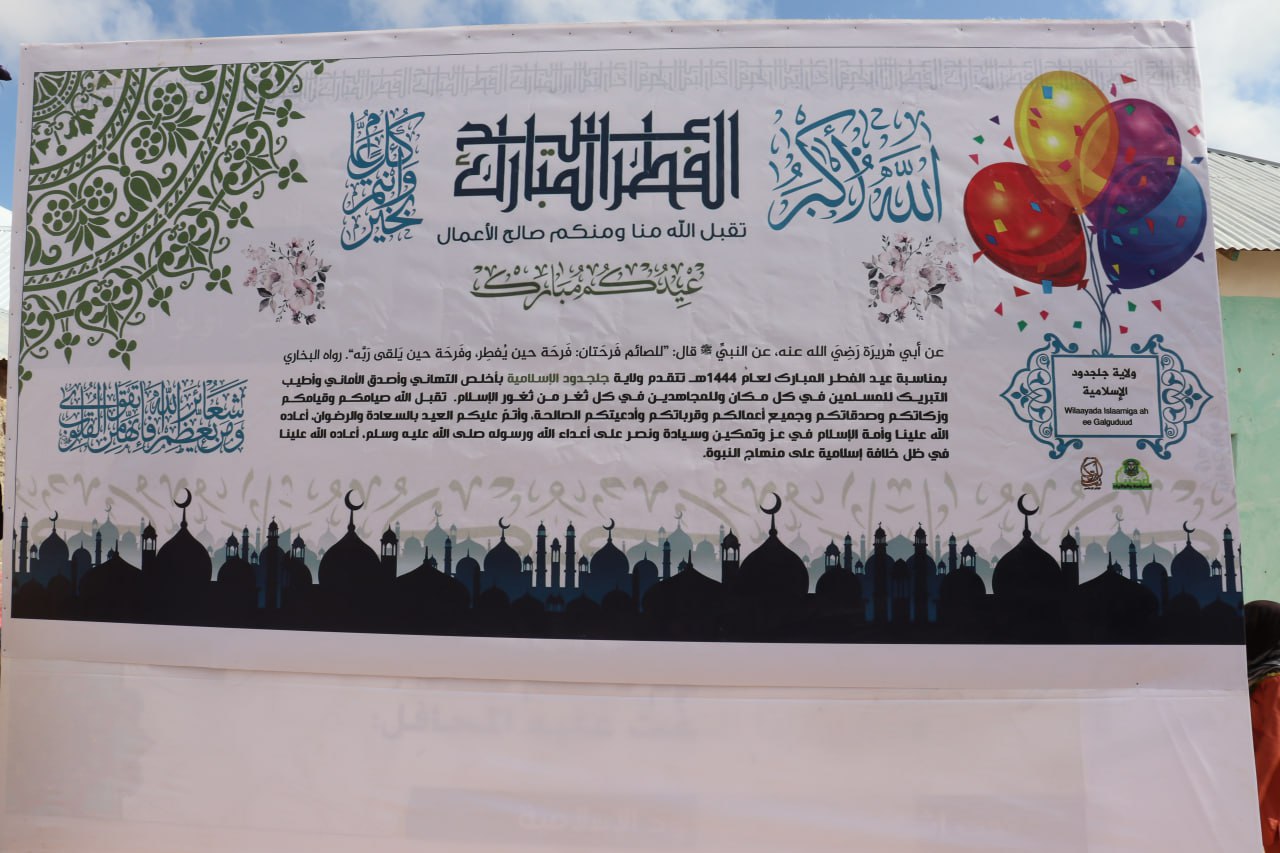 كل عام
وأنتم
بخير
عيد
الفطر المبارك
الله أكبر
تقبل الله منا ومنكم صالح الأعمال
عيدكم مبارك
عن أبي هُريرَة رَضِيَ الله عنه، عن النبيِّ ﷺ قال: "للصائم فَرحَتان: فَرحَة حين يُفطِر، وفَرحَة حين يَلقى رَبَّه". رواه البخاري
بمناسبة عيد الفطر المبارك لعام 1444هـ تتقدم ولاية جلجدود الإسلامية بأخلص التهاني وأصدق الأماني وأطيب
التبريك للمسلمين في كل مكان وللمجاهدين في كل ثغر من ثغور الإسلام. تقبل الله صيامكم وقيامكم
وزكاتكم وصدقاتكم وجميع أعمالكم وقرباتكم وأدعيتكم الصالحة، وأتمّ عليكم العيد بالسعادة والرضوان، أعاده
الله علينا وأمة الإسلام في عز وتمكين وسيادة ونصر على أعداء الله ورسوله صلى الله عليه وسلم، أعاده الله علينا
في ظل خلافة إسلامية على منهاج النبوة.
ولاية جلجدود
الإسلامية
Wilaayada Islaamiga ah
ee Galguduud
ومن يعظم شعائر الله فإنها من تقوى القلوب